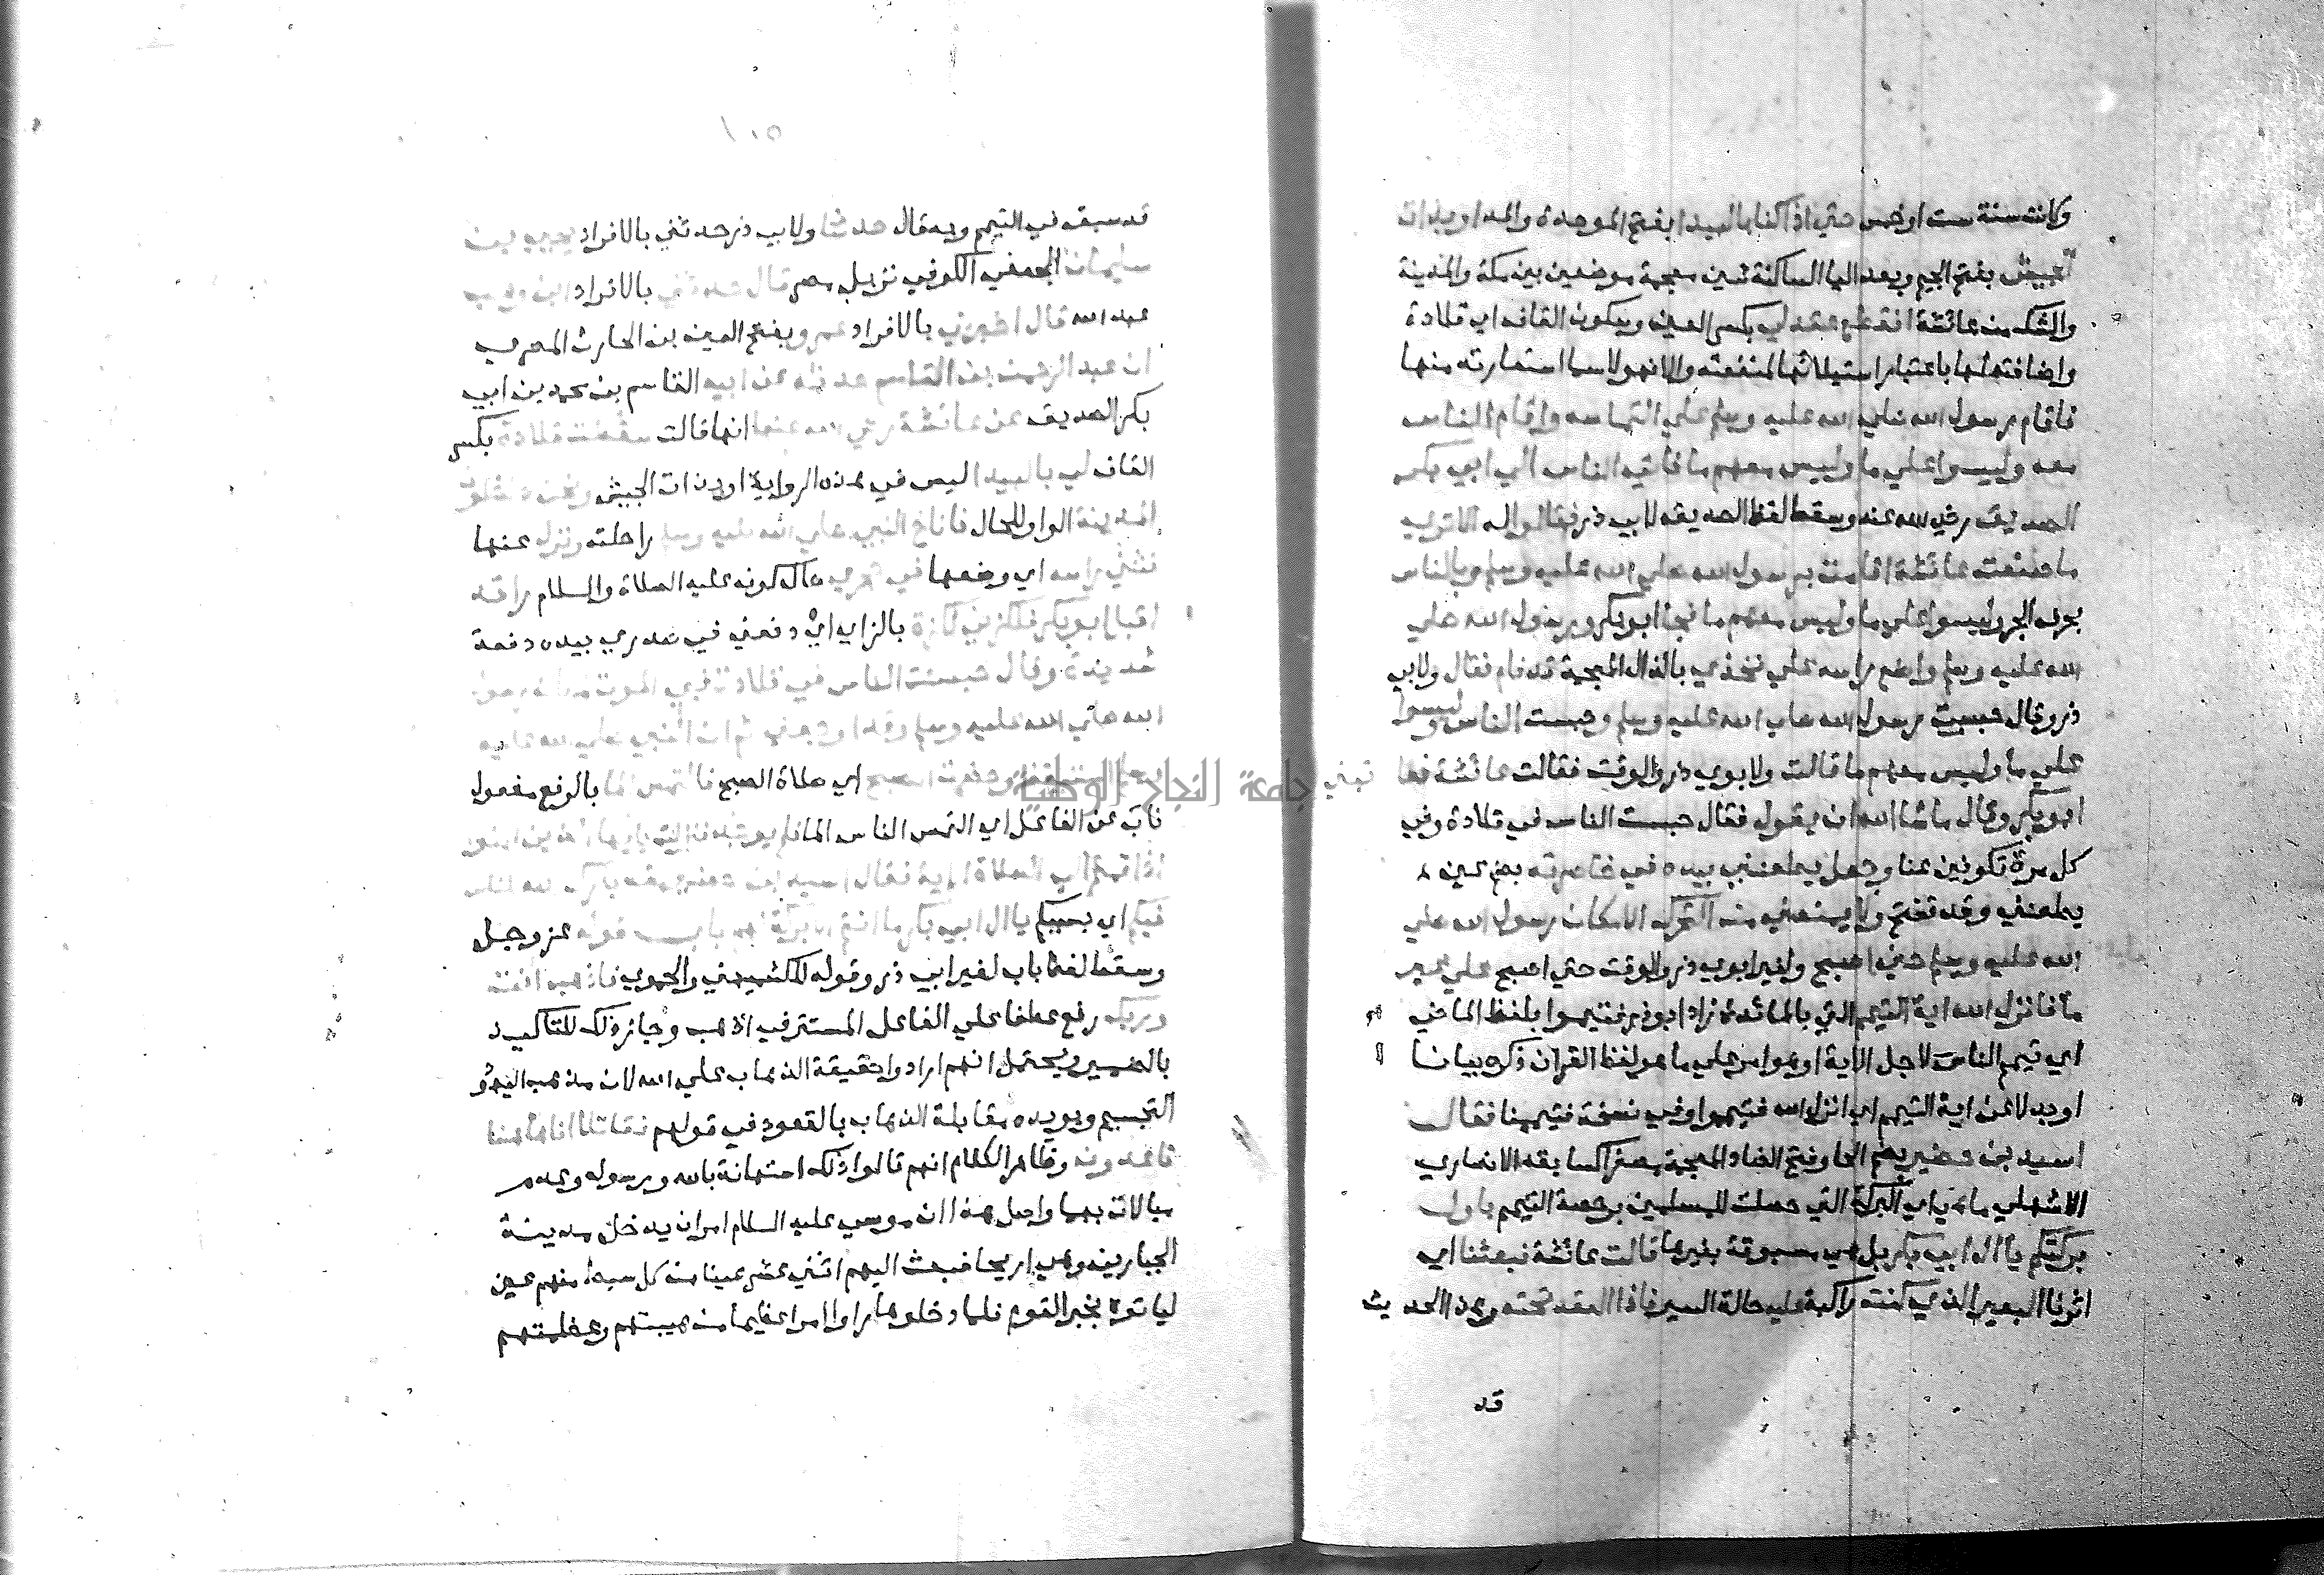 وكانت سنة ست او خمس حتي اذا كنا بالبيدا بفتح الموحدة والمد او بذات
الجيش بفتح الجيم وبعد اليا الساكنة شين معجمة موضعين بين مكة والمدينة
والشك من عائشة انقطع عقد لي بكسر العين وسكون القاف اي قلادة
واضافته لها باعتبار استيلائها لمنفعته والا فهو لاسما استعارته منها
فاقام رسول الله صلي الله عليه وسلم علي التماسه واقام الناس
معه وليسوا علي ما وليس معهم ما فاتي الناس الي ابي بكر
الصديق رضي الله عنه وسقط لفظ الصديق لابي ذر فقالوا له الا تري
ما صنعت عائشة اقامت برسول الله صلي الله عليه وسلم وبالناس
بحرف الجر وليسوا علي ما وليس معهم ما فجا ابو بكر ورسول الله صلي
الله عليه وسلم واضع راسه علي فخذي بالذال المعجمة قد نام فقال ولابي
ذر وقال حبست رسول الله صلي الله عليه وسلم وحبست الناس وليسوا
علي ما وليس معهم ما قالت ولابوي ذر والوقت فقالت عائشة فعاتبني
ابو بكر وقال ما شا الله ان يقول فقال حبست الناس في قلادة وفي
كل مرة تكونين عنا وجعل يطعنني بيده في خاصرته بضم عين
يطعنني وقد تفتح ولا يمنعني من التحرك الا مكان رسول الله صلي
الله عليه وسلم حتي اصبح ولغير ابوي ذر والوقت حتي اصبح علي غير
ما فانزل الله اية التيمم التي بالمائدة زاد ابو ذر فتيمموا بلفظ الماضي
اي تيمم الناس لاجل الاية او هو امر علي ما هو لفظ القران ذكره بيانا
او بدلا عن اية التيمم اي انزل الله فتيمموا وفي نسخة فتيممنا فقال
اسيد بن حضير بضم الحا وفتح الضاد المعجمة مصغرا كسابقه الانصاري
الاشهلي ما هي اي البركة التي حصلت للمسلمين برخصة التيمم باول
بركتكم يا ال ابي بكر بل هي مسبوقة بغيرها قالت عائشة فبعثنا اي
اثرنا البعير الذي كنت راكبة عليه حالة السير فاذا العقد تحته وهذا الحديث
قد
قد سبق في التيمم وبه قال حدثنا ولابي ذر حدثني بالافراد يحيي بن
سليمان الجعفي الكوفي نزيل مصر قال حدثني بالافراد ابن وهب
عبد الله قال اخبرني بالافراد عمرو بفتح العين بن الحارث المصري
ان عبد الرحمن بن القاسم حدثه عن ابيه القاسم بن محمد بن ابي
بكر الصديق عن عائشة رضي الله عنها انها قالت سقطت قلادة بكسر
القاف لي بالبيدا ليس في هذه الرواية او بذات الجيش ونحن داخلون
المدينة الواو للحال فاناخ النبي صلي الله عليه وسلم راحلته ونزل عنها
فثني راسه اي وضعها في حجري حال كونه عليه الصلاة والسلام راقدا
اقبل ابو بكر فلكزني لكزة بالزاي اي دفعني في صدري بيده دفعة
شديدة وقال حبست الناس في قلادة فبي الموت لمكان رسول
الله صلي الله عليه وسلم وقد اوجعني ثم ان النبي صلي الله عليه
وسلم استيقظ وحضرت الصبح اي صلاة الصبح فالتمس الما بالرفع مفعول
ناب عن الفاعل اي التمس الناس الما فلم يوجد فنزلت يا ايها الذين امنوا
اذا قمتم الي الصلاة الاية فقال اسيد بن حضير لقد بارك الله للناس
فيكم اي بسببكم يا ال ابي بكر ما انتم الا بركة لهم باب قوله عز وجل
وسقط لفظ باب لغير ابي ذر وقوله للكشميهني والحموي فاذهب انت
وربك رفع عطفا علي الفاعل المستتر في اذهب وجاز ذلك للتاكيد
بالضمير ويحتمل انهم ارادوا حقيقة الذهاب علي الله لان مذهب اليهود
التجسيم ويويده مقابلة الذهاب بالقعود في قولهم فقاتلا انا هاهنا
قاعدون وظاهر الكلام انهم قالوا ذلك استهانة بالله ورسوله وعدم
مبالات بهما واصل هذا ان موسي عليه السلام امر ان يدخل مدينة
الجبارين وهي اريحا فبعث اليهم اثني عشر عينا من كل سبط منهم عين
لياتوه بخبر القوم فلما دخلوها راوا امرا عظيما من هيبتهم وعظمتهم